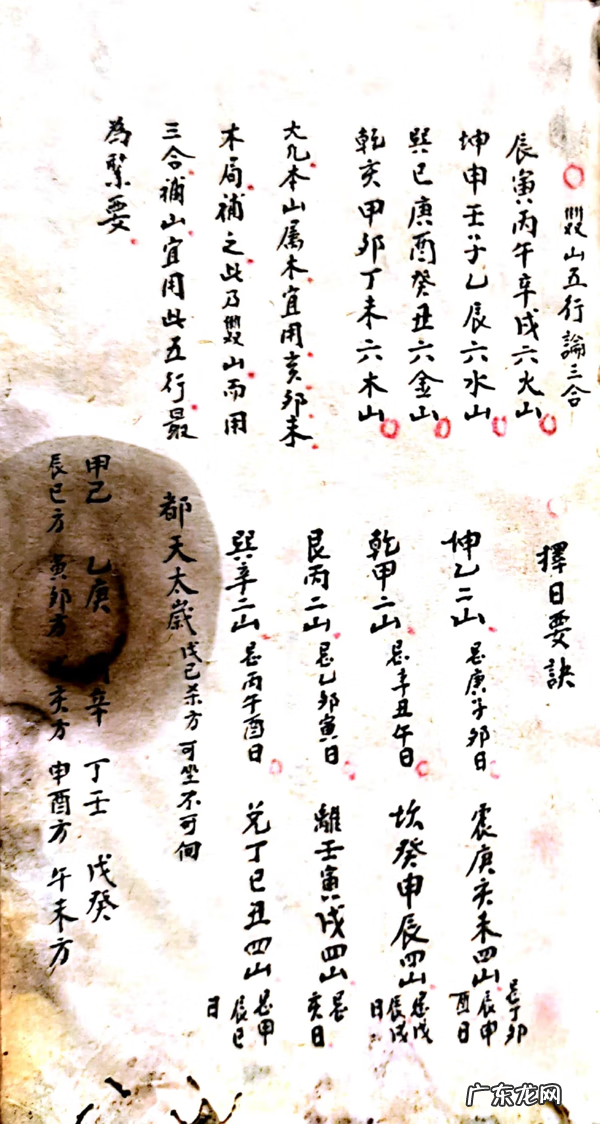 雙山五行論三合
辰寅丙午辛戌六火山
坤申壬子乙辰六水山
巽巳庚酉癸丑六金山
乾亥甲卯丁未六木山
大凡本山属木宜用亥卯未
木局補之此乃雙山而用
三合補山宜用此五行最
為緊要
擇日要訣
坤乙二山 忌庚子卯日 震庚亥未四山 忌丁卯辰申酉日
乾甲二山 忌辛丑午日 坎癸申辰四山 忌戊辰戌日
艮丙二山 忌乙卯寅日 離壬寅戌四山 忌亥日
巽辛二山 忌丙午酉日 兑丁巳丑四山 忌甲辰巳日
都天太歲 戊已杀方可坐不可向
甲己 乙庚 辛 丁壬 戊癸
辰巳方 寅卯方 亥方 申酉方 午未方
广东龙网